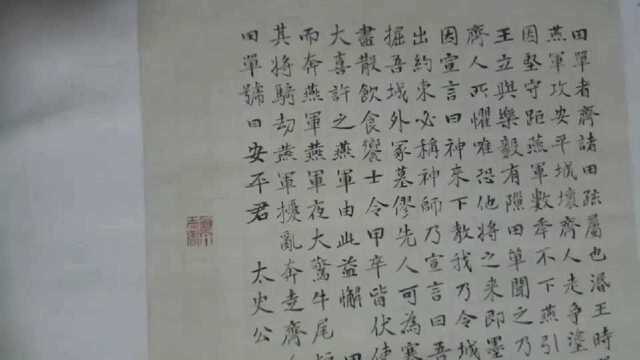 田單者齊諸田疏屬也湣王時
燕軍攻安平城壞齊人走爭塗
因堅守距燕軍數年不下燕引
王立與樂毅有隙田單聞之乃
齊人所懼唯恐他將之來即墨
因宣言曰神來下教我乃令城
出約束必稱神師乃宣言曰吾
掘吾城外冢墓僇先人可為寒
盡散飲食饗士令甲卒皆伏使
大喜許之燕軍由此益懈
而奔燕軍燕軍夜大驚牛尾
其將騎劫燕軍擾亂奔走齊
田單號曰安平君 太史公